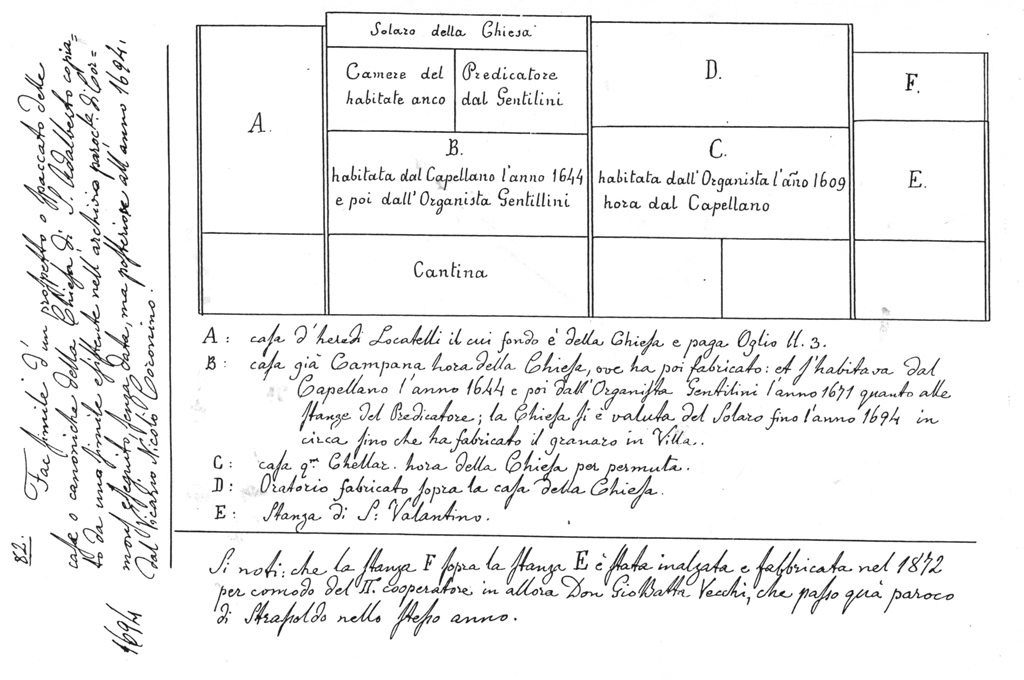 82. Fac simile d'un prospetto o spaccato delle
case o canoniche della Chiesa di S. Adalberto copia=
to da una simile esistente nell'archivio paroc.le di Cor=
mons eseguito senza data, ma posteriore all'anno 1694.
dal Vicario Nicolò Coronino.
1694
Solaro della Chiesa
Camere del
habitate anco
Predicatore
dal Gentilini
A.
B.
habitata dal Capellano l'anno 1644
e poi dall'Organista Gentillini
Cantina
D.
C.
habitata dall'Organista l'año 1609
hora dal Capellano
F.
E.
A: casa d'heredi Locatelli il cui fondo è della Chiesa e paga Oglio ll. 3.
B: casa già Campana hora della Chiesa, ove ha poi fabricato: et s'habitava dal
Capellano l'anno 1644 e poi dall'Organista Gentilini l'anno 1671 quanto alle
stanze del Predicatore; la Chiesa si è valuta del Solaro fino l'anno 1694 in
circa fino che ha fabricato il granaro in Villa..
C: casa q.m Chellar. hora della Chiesa per permuta.
D: Oratorio fabricato sopra la casa della Chiesa.
E: Stanza di S: Valantino.
Si noti: che la stanza F sopra la stanza E è stata inalzata e fabbricata nel 1872
per comodo del II. cooperatore in allora Don GioBatta Vecchi, che passo quà paroco
di Strasoldo nello stesso anno.